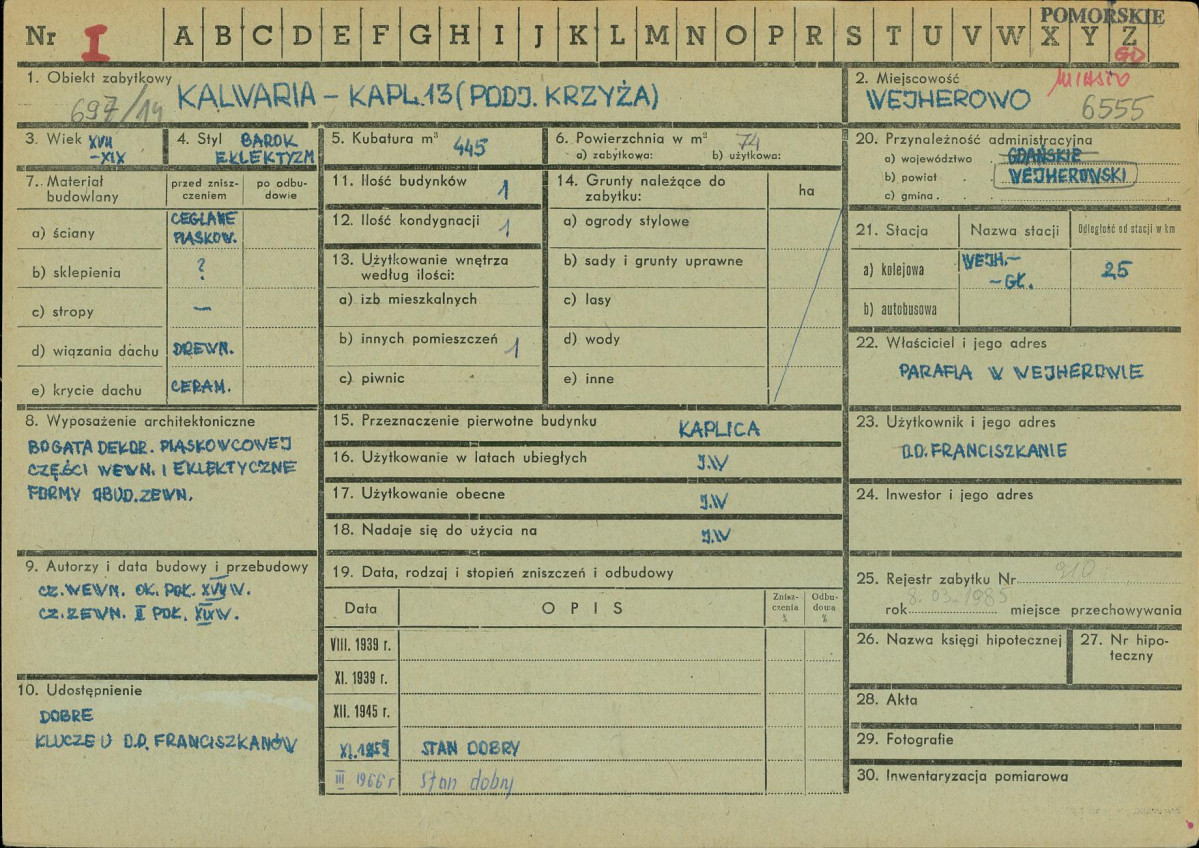 POMORSKIE
Nr I A B C D E F G H I J K L M N O P R S T U V W X Y Z
GD
1. Obiekt zabytkowy
697/14 KALWARIA – KAPL. 13 (PODJ. KRZYŻA)
2. Miejscowość MIASTO
WEJHEROWO 6555
3. Wiek XVII
–XIX
4. Styl BAROK
EKLEKTYZM
5. Kubatura m³ 445
6. Powierzchnia w m² 74
a) zabytkowa: b) użytkowa:
20. Przynależność administracyjna
a) województwo GDAŃSKIE
b) powiat WEJHEROWSKI
c) gmina
7. Materiał budowlany
przed znisz-
czeniem
po odbu-
dowie
a) ściany CEGLANE
PIASKOW.
b) sklepienia ?
c) stropy —
d) wiązania dachu DREWN.
e) krycie dachu CERAM.
11. Ilość budynków 1
12. Ilość kondygnacji 1
13. Użytkowanie wnętrza
według ilości:
a) izb mieszkalnych
b) innych pomieszczeń 1
c) piwnic
14. Grunty należące do
zabytku:
ha
a) ogrody stylowe
b) sady i grunty uprawne
c) lasy
d) wody
e) inne
21. Stacja Nazwa stacji Odległość od stacji w km
a) kolejowa WEJH.–
–GŁ. 25
b) autobusowa
22. Właściciel i jego adres
PARAFIA W WEJHEROWIE
8. Wyposażenie architektoniczne
BOGATA DEKOR. PIASKOWCOWEJ
CZĘŚCI WEWN. I EKLEKTYCZNE
FORMY OBUD. ZEWN.
15. Przeznaczenie pierwotne budynku KAPLICA
16. Użytkowanie w latach ubiegłych J.W
17. Użytkowanie obecne J.W
18. Nadaje się do użycia na J.W
23. Użytkownik i jego adres
O.O. FRANCISZKANIE
24. Inwestor i jego adres
9. Autorzy i data budowy i przebudowy
CZ. WEWN. OK. POŁ. XVII W.
CZ. ZEWN. II POŁ. XIX W.
19. Data, rodzaj i stopień zniszczeń i odbudowy
Data OPIS
Znisz-
czenia
%
Odbu-
dowa
%
VIII. 1939 r.
XI. 1939 r.
XII. 1945 r.
XI. 1959 STAN DOBRY
III 1966 r Stan dobry
25. Rejestr zabytku Nr 910
rok 8.03.1985 miejsce przechowywania
26. Nazwa księgi hipotecznej
27. Nr hipo-
teczny
10. Udostępnienie
DOBRE
KLUCZE U O.O. FRANCISZKANÓW
28. Akta
29. Fotografie
30. Inwentaryzacja pomiarowa